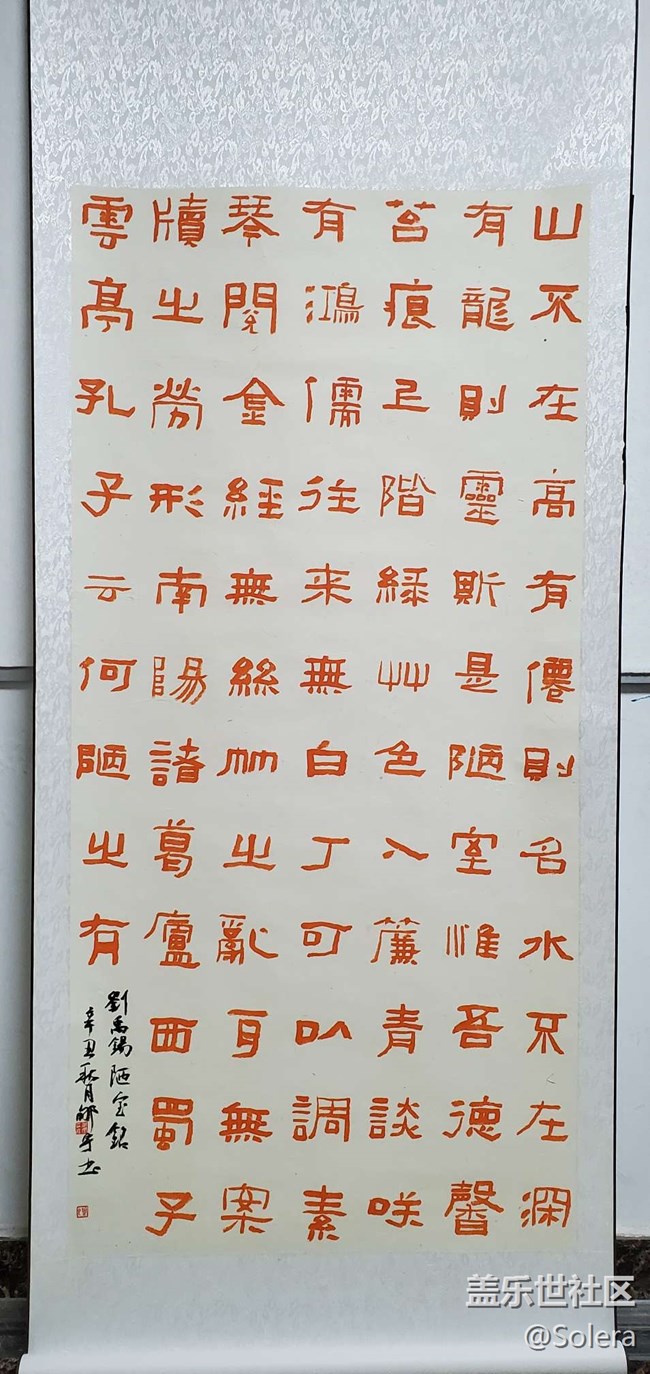 山不在高有僊則名水不在深
有龍則靈斯是陋室惟吾德馨
苔痕上階綠艸色入簾青談咲
有鴻儒往来無白丁可以調素
琴閲金經無絲竹之亂耳無案
牘之勞形南陽諸葛廬西蜀子
雲亭孔子云何陋之有
劉禹錫陋室銘
辛丑秋月书
盖乐世社区
@Solera